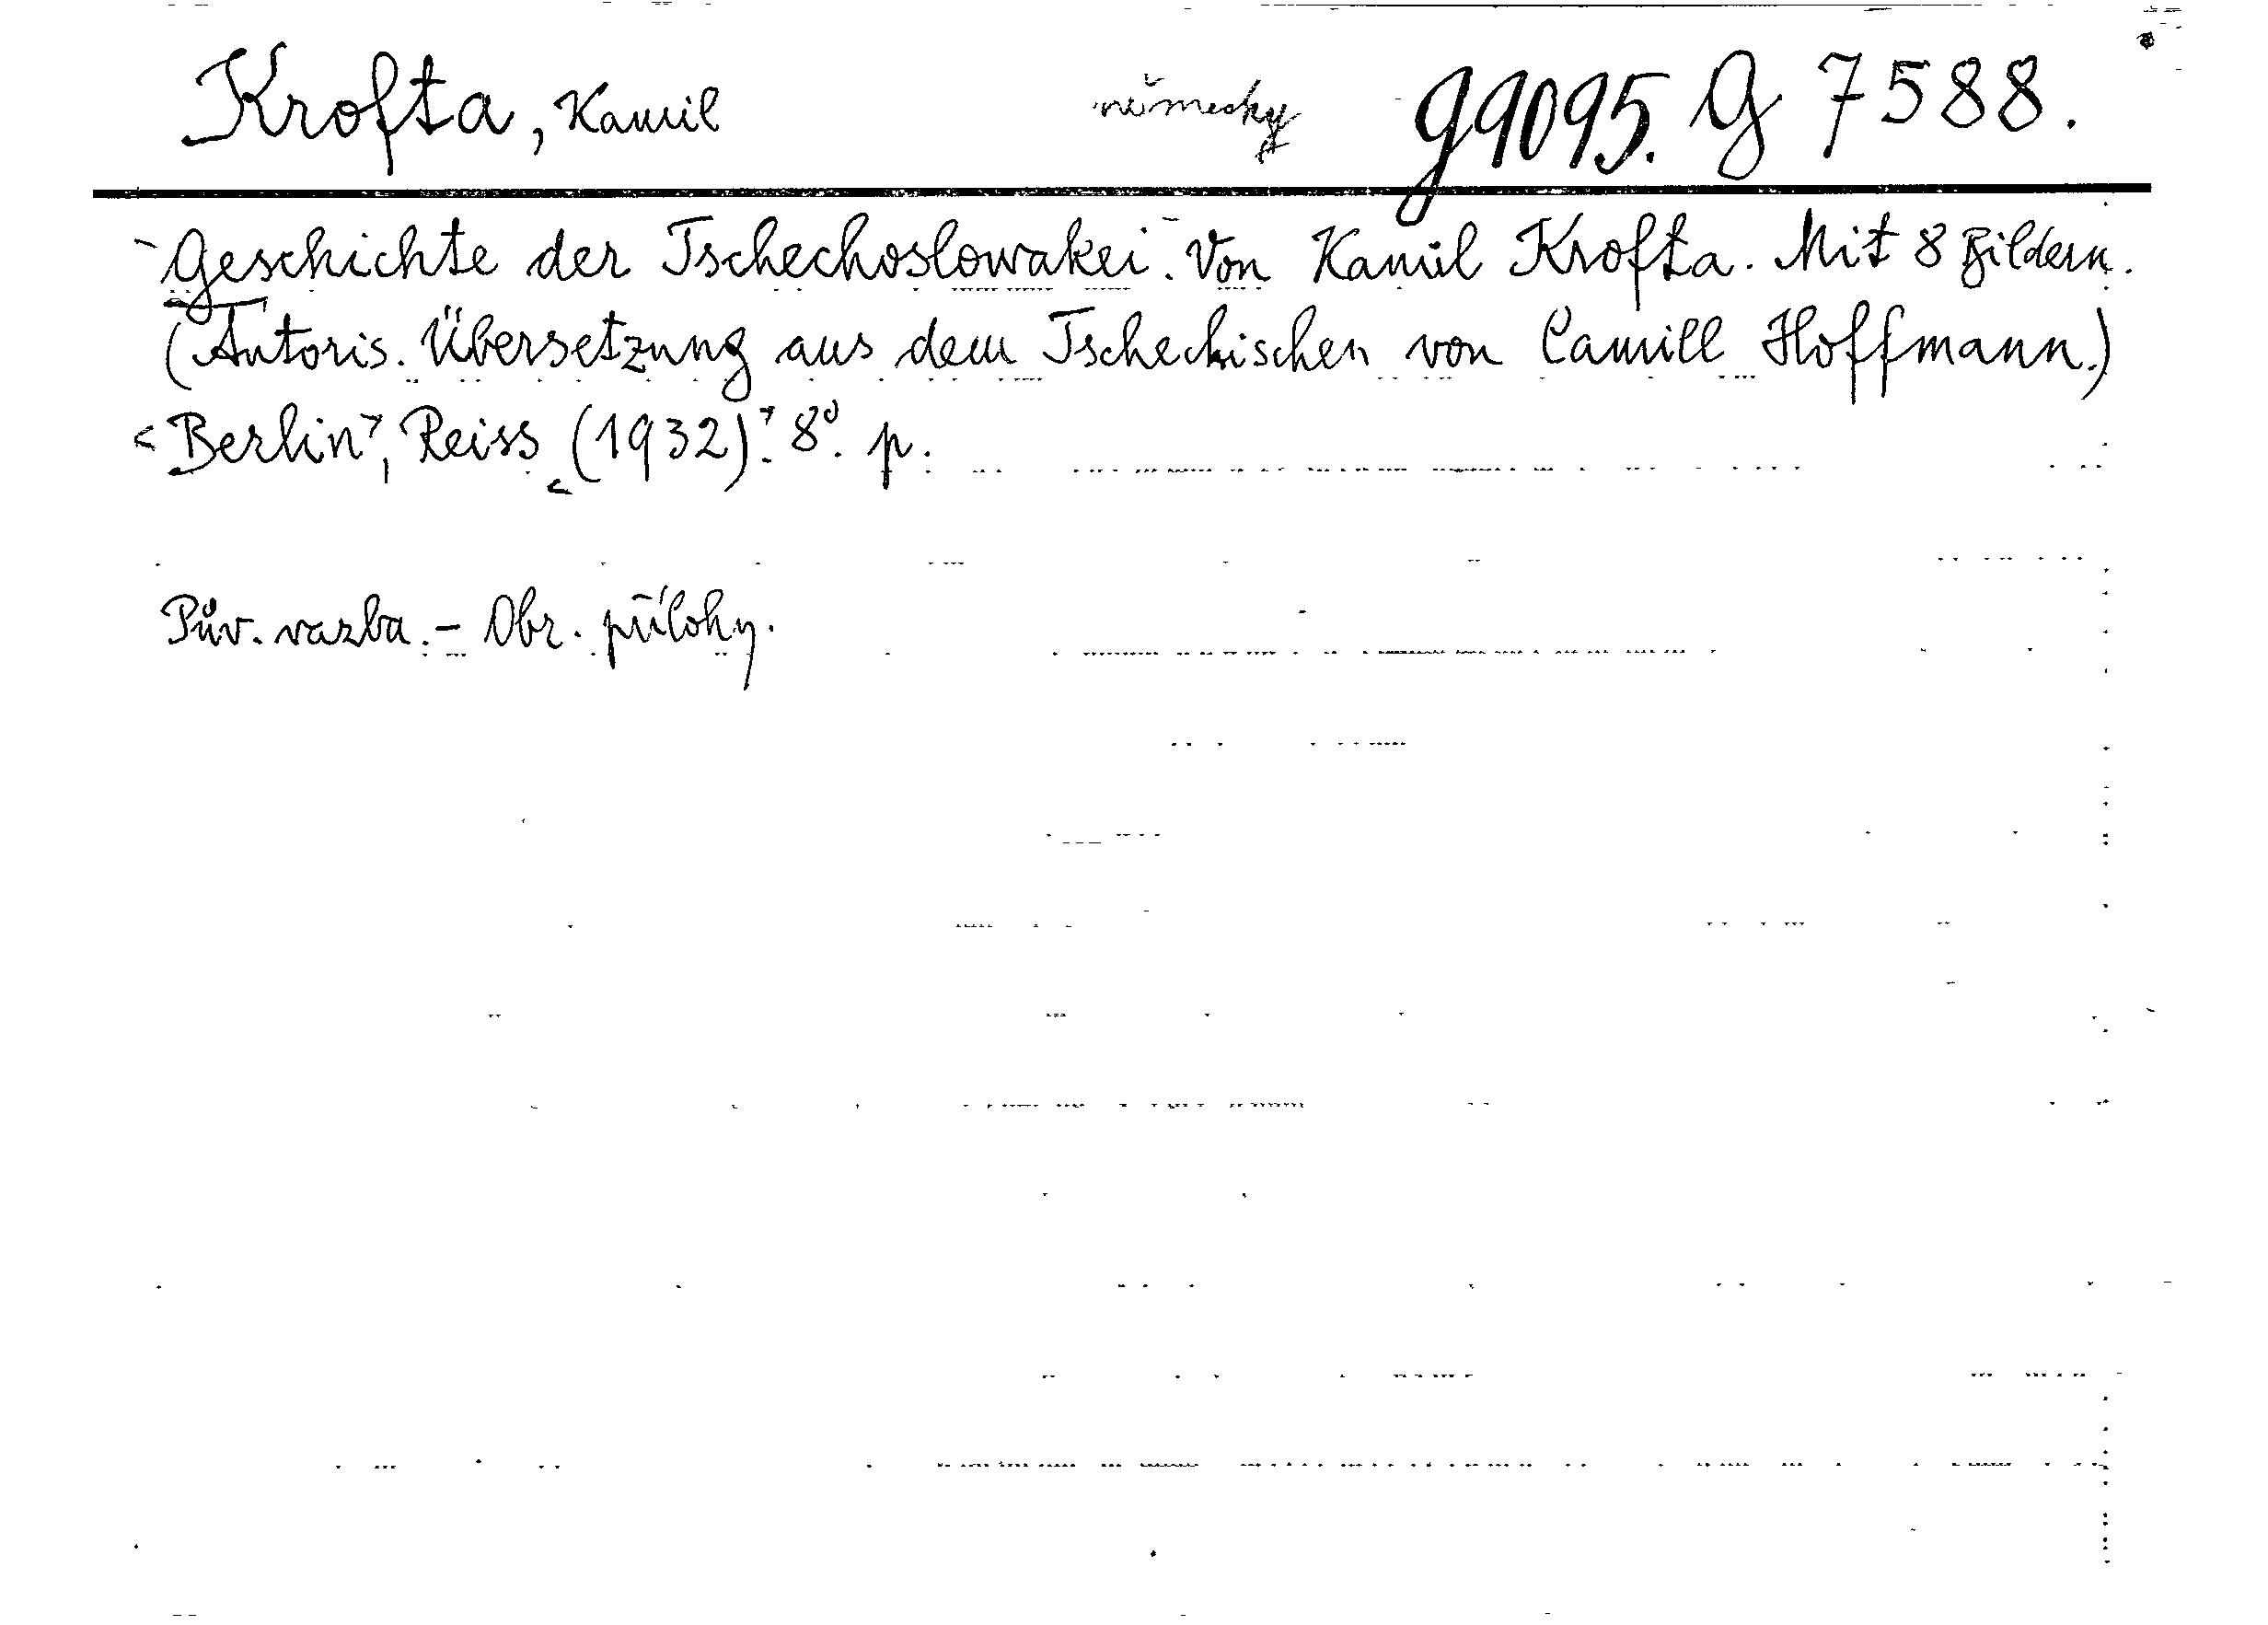 Krofta, Kamil německy g9095. G 7588.
Geschichte der Tschechoslowakei. Von Kamil Krofta. Mit 8 Bildern.
(Autoris. Übersetzung aus dem Tschechischen von Camill Hoffmann.)
<Berlin>, Reiss <(1932)>. 8°. p.
Pův. vazba. - Obr. přílohy.